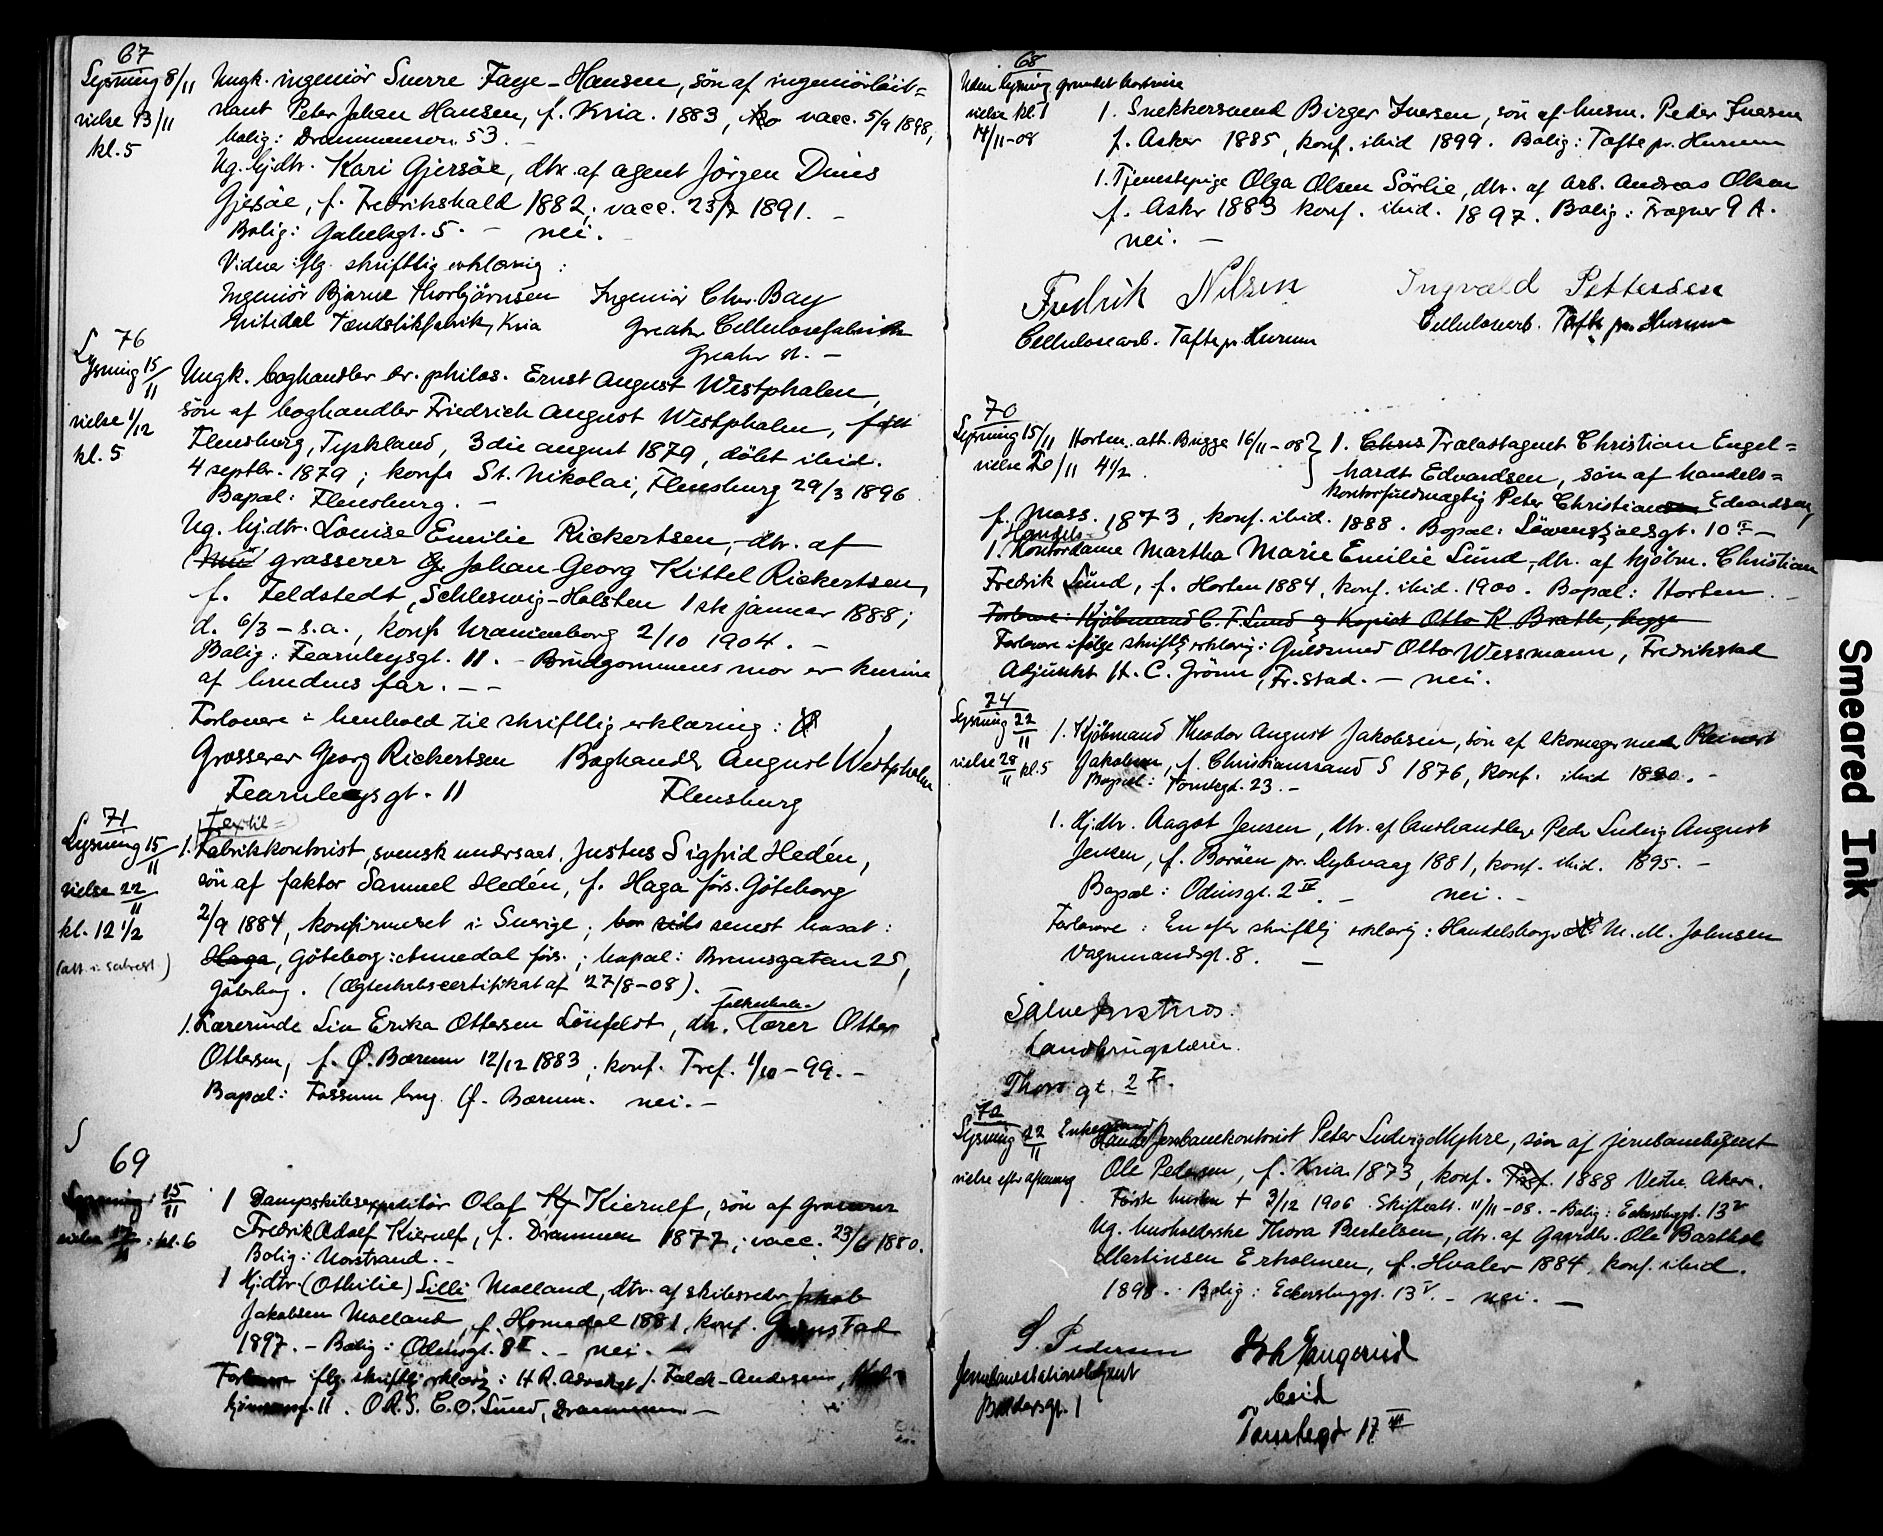 67
Lysning 8/11
vielse 13/11
kl. 5
Ungk. ingeniör Sverre Faye-Hansen, sön af ingeniörlöit=
nant Peter Johan Hansen, f. Kria. 1883, vacc. 5/9 1898,
bolig: Drammensv. 53. –
Ug. hjdtr. Kari Gjersöe, dtr. af agent Jörgen Dinis
Gjersöe, f. Fredrikshald 1882; vacc. 23/7 1891. –
Bolig: Gabelsgt. 5. – nei. –
Vidner iflg. skriftlig erklæring:
Ingeniör Bjarne Thorbjörnsen Ingeniör Chr. Bay
Nitedal Tændstikfabrik, Kria Greaker Cellulosefabrik
Greaker st. –
76
Lysning 15/11
vielse 1/12
kl. 5
Ungk. boghandler dr. philos. Ernst August Westphalen,
sön af boghandler Friedrich August Westphalen, födt
Flensburg, Tyskland, 3die august 1879, döbt ibid.
4 septbr. 1879; konf. St. Nikolai, Flensburg 29/3 1896
Bopæl: Flensburg. –
Ug. hj.dtr. Louise Emilie Rickertsen, dtr. af
grosserer Johan Georg Kittel Rickertsen,
f. Feldstedt, Schleswig-Holsten 1ste januar 1888;
d. 6/3 – s.a., konf. Uranienborg 2/10 1904. –
Bolig: Fearnleysgt. 11. – Brudgommens mor er kusine
af brudens far. – –
Forlovere i henhold til skriftlig erklæring:
Grosserer Georg Rickertsen Boghandler August Westphalen
Fearnleysgt. 11 Flensburg
71
Lysning 15/11
vielse 22/11
kl. 12 1/2
Textil=
1. Fabrikkontorist, svensk undersaat, Justus Sigfrid Hedén,
sön af faktor Samuel Hedén, f. Haga förs. Göteborg
2/9 1884, konfirmeret i Sverige; senest bosat:
Haga, Göteborg: Annedal förs.; bopæl: Brunsgatan 25,
Göteborg. (Ægteskabscertifikat af 27/8-08). –
folkeskole
1. Lærerinde Liv Erika Ottersen Lönfeldt, dtr. lærer Otter
Ottersen, f. Ö. Bærum 12/12 1883; konf. Tref. 1/10-99. –
Bopæl: Fossum brug Ö. Bærum. nei. –
69
Lysning 15/11
kl. 6
1 Dampskibsexpeditör Olaf Kierulf, sön af grosserer
Fredrik Adolf Kierulf, f. Drammen 1877; vacc. 23/6 1880.
Bolig: Norstrand. –
1 Hj.dtr. (Othilie) Lilli Molland, dtr. af skibsreder Jakob
Jakobsen Molland, f. Homedal 1881, konf. Grimstad
1897. – Bolig: Odinsgt. 8 II. – nei. –
Forlovere iflg. skriftlig erklæring: H.R. Advokat J. Falck-Andersen,
11. O.R.S. C.O. Lund, Drammen –
68
Uden lysning grundet hastreise
vielse kl. 1
14/11-08
1. Snekkersvend Birger Iversen, sön af husm. Peder Iversen
f. Asker 1885, konf. ibid 1899. Bolig: Tofte pr. Hurum
1. Tjenestepige Olga Olsen Sörlie, dtr. af arb. Andreas Olsen
f. Asker 1883 konf. ibid. 1897. Bolig: Frogner 9 A.
nei. –
Fredrik Nilsen Ingvald Pettersen
Cellulosearb. Tofte pr. Hurum Cellulosearb. Tofte pr. Hurum
70
Lysning 15/11 Horten. att. Brygge 16/11-08
vielse 20/11 4 1/2
1. Chris Trælastagent Christian Engel=
hardt Edvardsen, sön af handels=
kontorfuldmægtig Peter Christian Edvardsen,
f. Moss. 1873, konf. ibid. 1888. Bopæl: Lövenskjoldsgt. 10 –
Handels-
1. Kontordame Martha Marie Emilie Lund, dtr. af kjöbm. Christian
Fredrik Lund, f. Horten 1884, konf. ibid. 1900. Bopæl: Horten. –
Forlovere: Kjöbmand C. F. Lund og Kopist Otto K. Brath, begge
Forlovere ifölge skriftlig erklæring: Guldsmed Otto Wessmann, Fredrikstad
Adjunkt H. C. Grönn, Fr.stad. – nei.
74
Lysning 22/11
vielse 28/11 kl. 5
1. Kjöbmand Theodor August Jakobsen, sön af skomagermester Reinert
Jakobsen, f. Christianssand S 1876, konf. ibid 1890. –
Bopæl: Tomtegt. 23. –
1. Hj.dtr. Aagot Jensen, dtr. af Peder Ludvig August
Jensen, f. Boröen pr. Dybvaag 1881, konf. ibid. 1895. –
Bopæl: Odinsgt. 2 IV. – nei. –
Forlovere: En efter skriftlig erklæring: Handelsborger M. M. Johnsen
Vognmandsgt. 8. –
Salve Justnæs.
Landbrugslærer.
Thors gt. 2 V.
72
Lysning 22/11
vielse efter aftensang
Enkemand Jernbanekontorist Peter Ludvig Myhre, sön af jernbanebetjent
Ole Pedersen, f. Kria. 1873, konf. 1888 Vestre Aker.
Förste hustru † 3/12 1906. Skifteatt. 11/11-08. – Bolig: Eckersbergsgt. 13 V
Ug. husholderske Thora Bertelsen, dtr. af Gaardbr. Ole Barthol
Martinsen Erholmen, f. Hvaler 1884, konf. ibid.
1898. Bolig: Eckersbergsgt. 13 V. – nei. –
S. Pedersen
Jernbanestationsbetjent
1
bud
Tomtegd 17 III
Smeared Ink